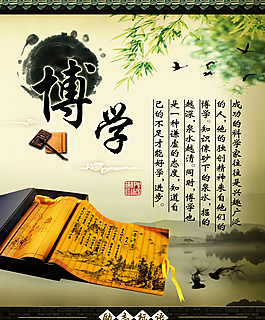 博学
成功的科学家往往是兴趣广泛
的人，他的独创精神来自他们的
博学。知识像砂下的泉水，掘的
越深，泉水越清。同时，博学也
是一种谦虚的态度，知道自
己的不足才能好学，进步。